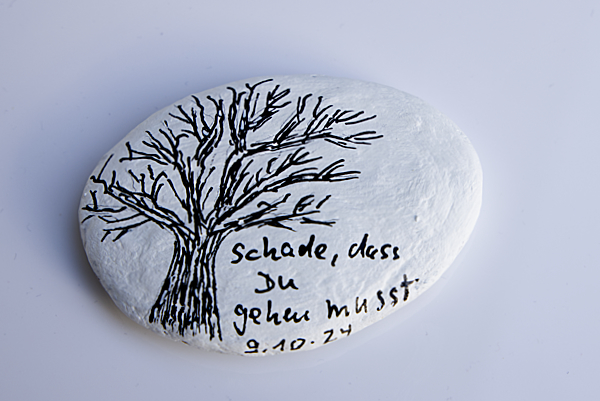 schade, dass
Du
gehen musst.
9.10.24